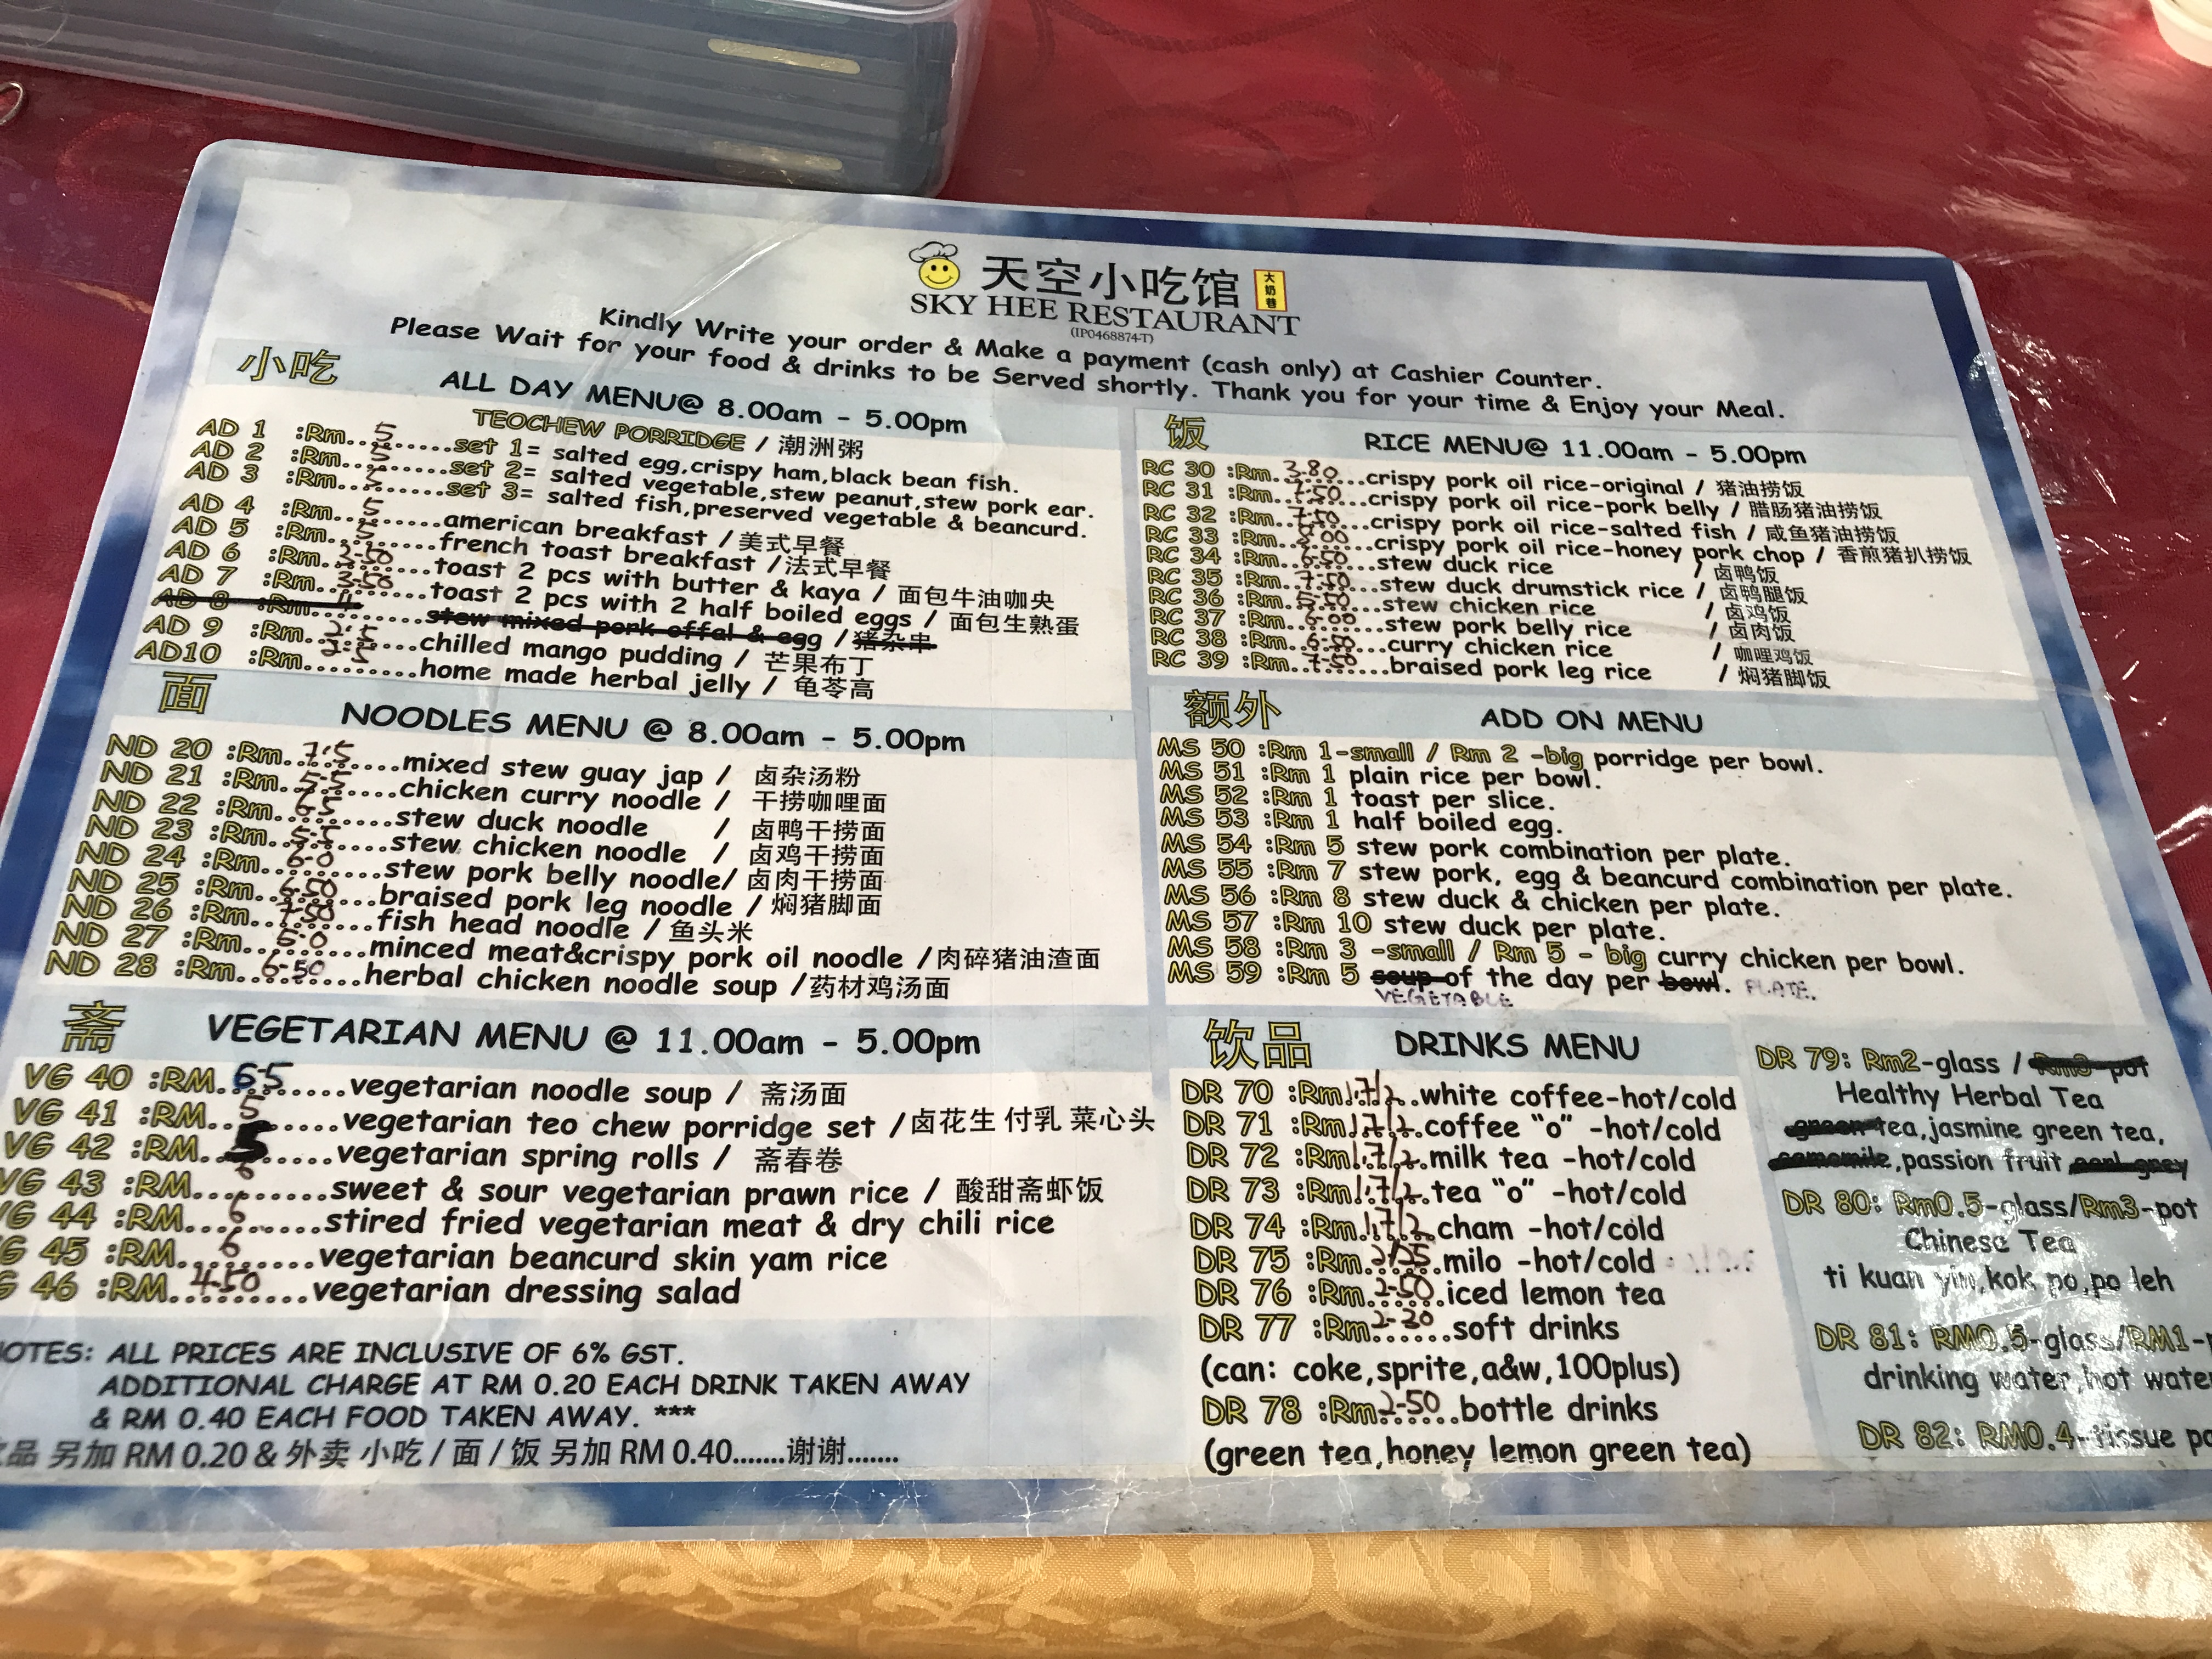 天空小吃馆 大奶巷
SKY HEE RESTAURANT
(IP0468874-T)
Kindly Write your order & Make a payment (cash only) at Cashier Counter.
Please Wait for your food & drinks to be Served shortly. Thank you for your time & Enjoy your Meal.
小吃 ALL DAY MENU@ 8.00am - 5.00pm
TEOCHEW PORRIDGE / 潮洲粥
AD 1 :Rm..5......set 1= salted egg,crispy ham,black bean fish.
AD 2 :Rm..5......set 2= salted vegetable,stew peanut,stew pork ear.
AD 3 :Rm..5......set 3= salted fish,preserved vegetable & beancurd.
AD 4 :Rm..5......american breakfast / 美式早餐
AD 5 :Rm..5......french toast breakfast /法式早餐
AD 6 :Rm..2-50......toast 2 pcs with butter & kaya / 面包牛油咖央
AD 7 :Rm..3-50......toast 2 pcs with 2 half boiled eggs / 面包生熟蛋
AD 8 :Rm..4......stew mixed pork offal & egg /猪杂串
AD 9 :Rm.........chilled mango pudding / 芒果布丁
AD10 :Rm.........home made herbal jelly / 龟苓高
面 NOODLES MENU @ 8.00am - 5.00pm
ND 20 :Rm..7.5......mixed stew guay jap / 卤杂汤粉
ND 21 :Rm..5-5......chicken curry noodle / 干捞咖哩面
ND 22 :Rm..6-5......stew duck noodle / 卤鸭干捞面
ND 23 :Rm..5-5......stew chicken noodle / 卤鸡干捞面
ND 24 :Rm..6-0......stew pork belly noodle/ 卤肉干捞面
ND 25 :Rm..6-50......braised pork leg noodle / 焖猪脚面
ND 26 :Rm..7-50......fish head noodle / 鱼头米
ND 27 :Rm..5-0......minced meat&crispy pork oil noodle /肉碎猪油渣面
ND 28 :Rm..6-50......herbal chicken noodle soup /药材鸡汤面
斋 VEGETARIAN MENU @ 11.00am - 5.00pm
VG 40 :RM.6-5......vegetarian noodle soup / 斋汤面
VG 41 :RM..5......vegetarian teo chew porridge set /卤花生 付乳 菜心头
VG 42 :RM..5......vegetarian spring rolls / 斋春卷
VG 43 :RM..6......sweet & sour vegetarian prawn rice / 酸甜斋虾饭
VG 44 :RM..6......stired fried vegetarian meat & dry chili rice
G 45 :RM..6......vegetarian beancurd skin yam rice
G 46 :RM.4-50......vegetarian dressing salad
NOTES: ALL PRICES ARE INCLUSIVE OF 6% GST.
ADDITIONAL CHARGE AT RM 0.20 EACH DRINK TAKEN AWAY
& RM 0.40 EACH FOOD TAKEN AWAY. ***
品 另加 RM 0.20 & 外卖 小吃 / 面 / 饭 另加 RM 0.40.......谢谢.......
饭 RICE MENU@ 11.00am - 5.00pm
RC 30 :Rm.3-80...crispy pork oil rice-original / 猪油捞饭
RC 31 :Rm..7-50...crispy pork oil rice-pork belly / 腊肠猪油捞饭
RC 32 :Rm..7-50...crispy pork oil rice-salted fish / 咸鱼猪油捞饭
RC 33 :Rm..8-00...crispy pork oil rice-honey pork chop / 香煎猪扒捞饭
RC 34 :Rm..6-50...stew duck rice / 卤鸭饭
RC 35 :Rm..7-50...stew duck drumstick rice / 卤鸭腿饭
RC 36 :Rm..5-50...stew chicken rice / 卤鸡饭
RC 37 :Rm..6-00...stew pork belly rice / 卤肉饭
RC 38 :Rm..6-50...curry chicken rice / 咖哩鸡饭
RC 39 :Rm..7-50...braised pork leg rice / 焖猪脚饭
额外 ADD ON MENU
MS 50 :Rm 1-small / Rm 2 -big porridge per bowl.
MS 51 :Rm 1 plain rice per bowl.
MS 52 :Rm 1 toast per slice.
MS 53 :Rm 1 half boiled egg.
MS 54 :Rm 5 stew pork combination per plate.
MS 55 :Rm 7 stew pork, egg & beancurd combination per plate.
MS 56 :Rm 8 stew duck & chicken per plate.
MS 57 :Rm 10 stew duck per plate.
MS 58 :Rm 3 -small / Rm 5 - big curry chicken per bowl.
MS 59 :Rm 5 soup of the day per bowl. PLATE.
VEGETABLE
饮品 DRINKS MENU
DR 70 :Rm1.7/2..white coffee-hot/cold
DR 71 :Rm1.7/2.coffee "o" -hot/cold
DR 72 :Rm1.7/2.milk tea -hot/cold
DR 73 :Rm1.7/2.tea "o" -hot/cold
DR 74 :Rm.1.7/2.cham -hot/cold
DR 75 :Rm.2/25.milo -hot/cold
DR 76 :Rm.2-50.iced lemon tea
DR 77 :Rm.2-30...soft drinks
(can: coke,sprite,a&w,100plus)
DR 78 :Rm2-50...bottle drinks
(green tea,honey lemon green tea)
DR 79: Rm2-glass / Rm3-pot
Healthy Herbal Tea
green tea,jasmine green tea,
camomile,passion fruit earl grey
DR 80: Rm0.5-glass/Rm3-pot
Chinese Tea
ti kuan yin,kok po,po leh
DR 81: RM0.5-glass/RM1-
drinking water,hot water
DR 82: RM0.4-tissue